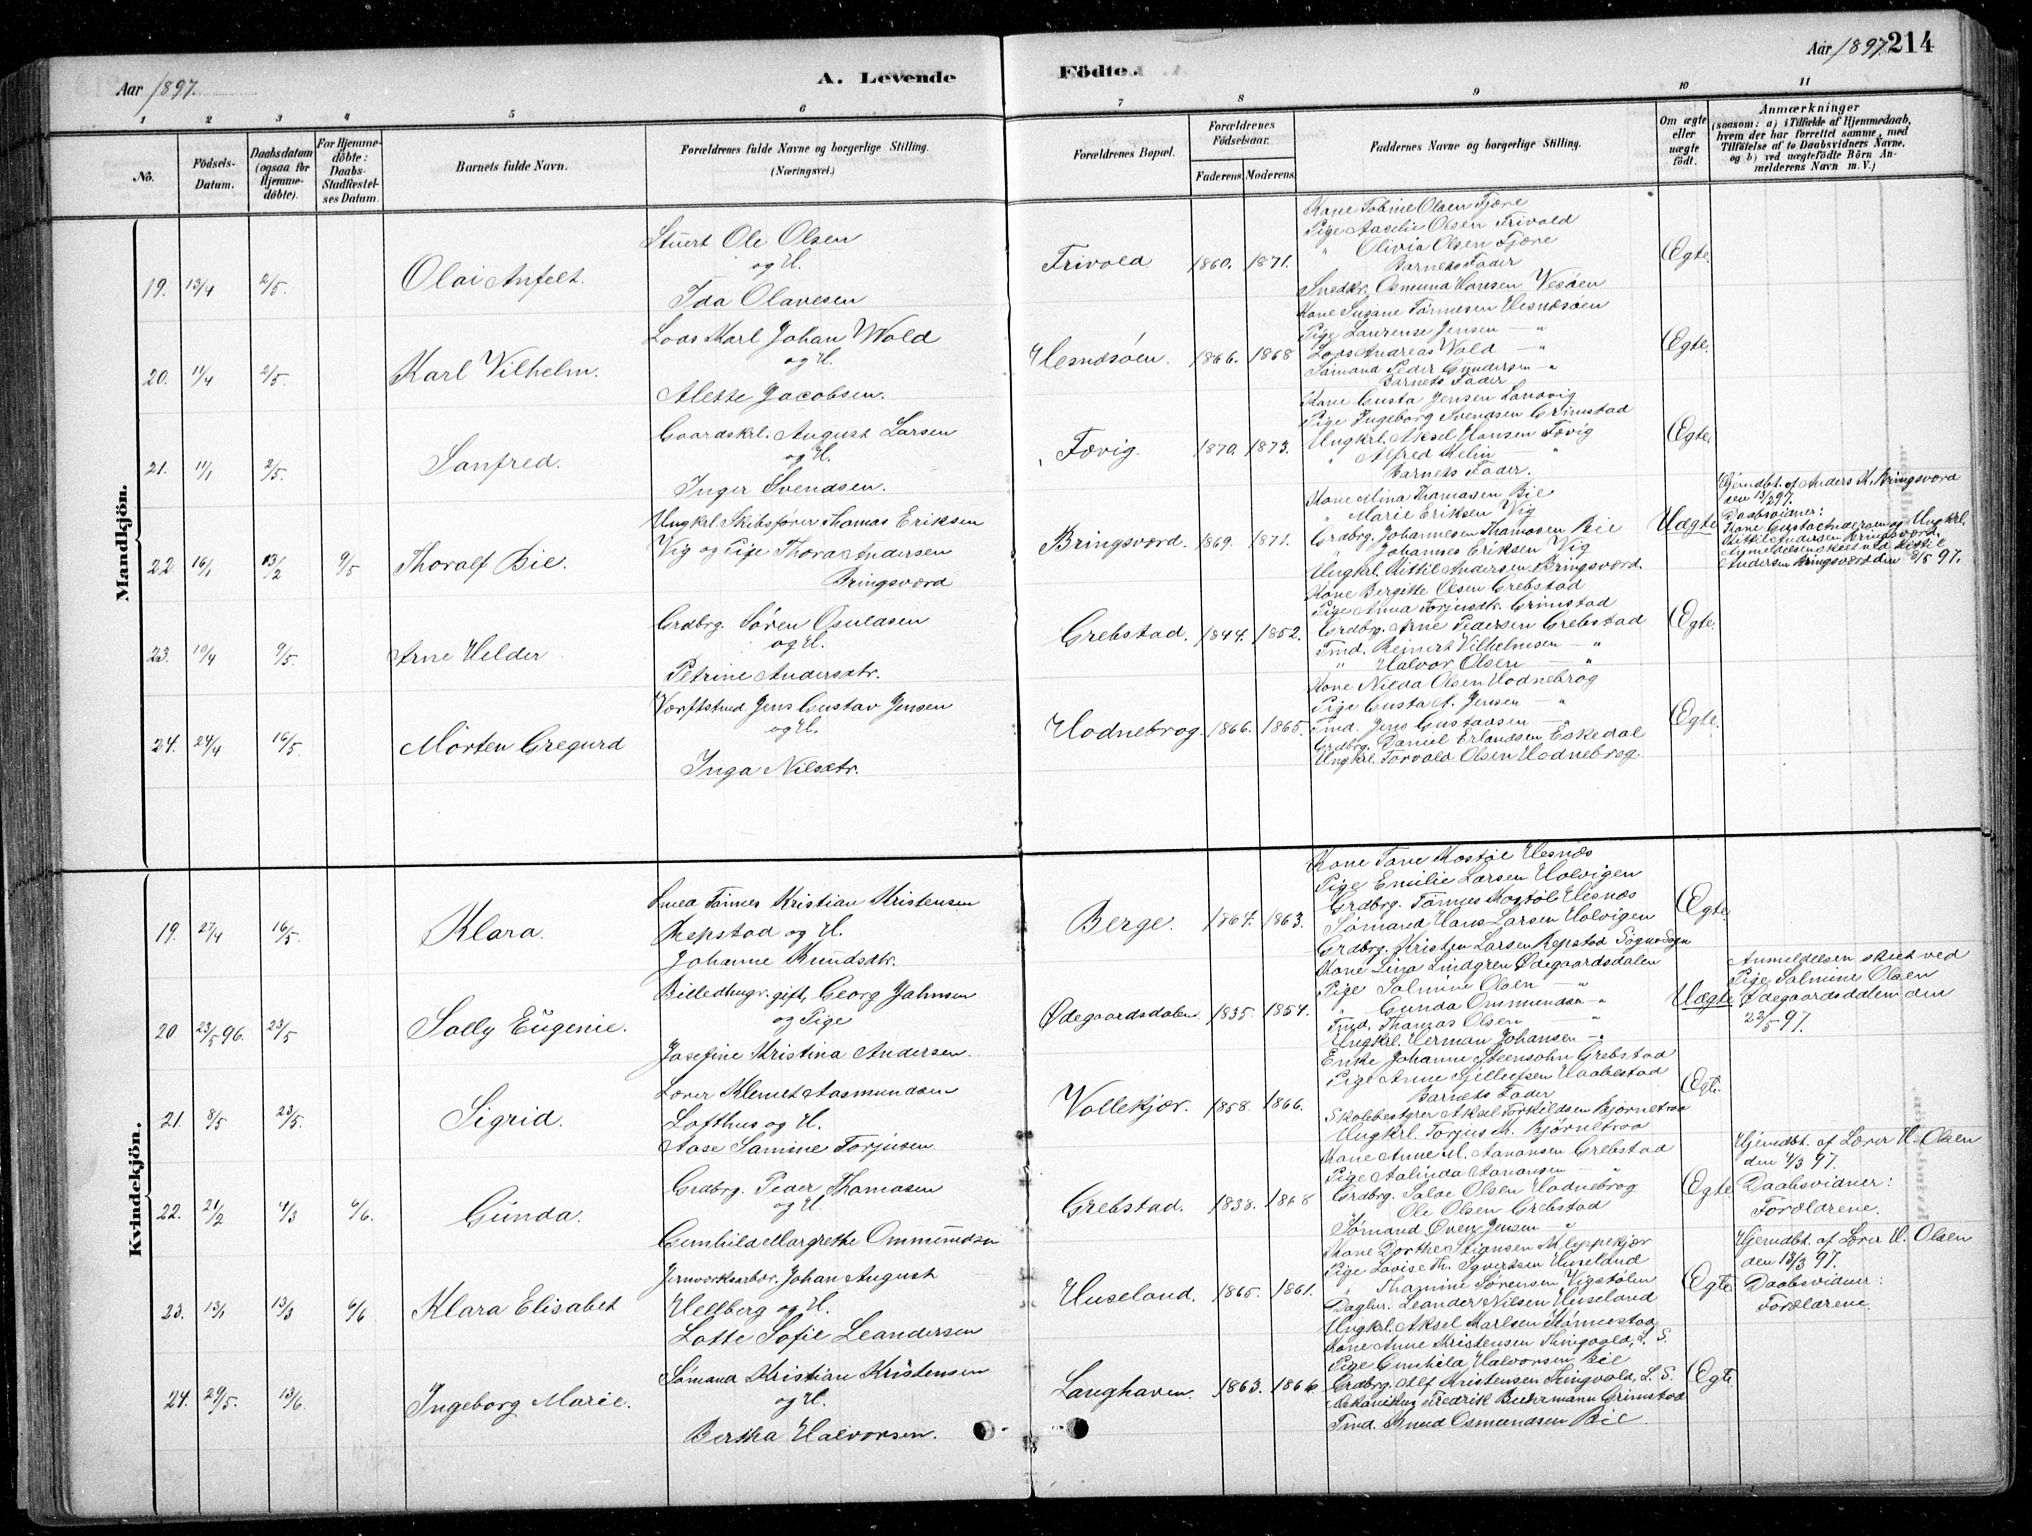 Aar 1897.
A. Levende
Födte.
Aar 1897. 214
1 2 3 4 5 6 7 8 9 10 11
No.
Födsels-Datum.
Daabsdatum (ogsaa for Hjemme-döbte).
For Hjemme-döbte: Daabs-Stadfæstel-ses Datum.
Barnets fulde Navn.
Forældrenes fulde Navne og borgerlige Stilling. (Næringsvei.)
Forældrenes Bopæl.
Forældrenes Födselsaar.
Faderens. Moderens.
Faddernes Navne og borgerlige Stilling.
Om ægte eller uægte födt.
Anmærkninger
(saasom: a) i Tilfælde af Hjemmedaab, hvem der har forrettet samme, med Tilföielse af to Daabsvidners Navne, og b) ved uægtefödte Börn An-melderens Navn m. V.)
Mandkjön.
19. 13/4 2/5. Olai Anfelt.
Stuert Ole Olsen
og H.
Ida Olavesen
Frivold 1860. 1871.
Kone Tobine Olsen Fjære
Pige Aaselie Olsen Frivold
" Olivia Olsen Fjære
Barnets Fader
Snedkr. Osmund Hansen Vesöen
Egte.
20. 11/4 2/5. Karl Vilhelm.
Lods Karl Johan Wold
og H.
Alette Jacobsen.
Hesnæsöen. 1866. 1868
Kone Susane Tönnesen Hesnæsöen
Pige Laurense Jensen — "
Lods Andreas Wold — "
Sömand Peder Gundersen — "
Barnets Fader
Egte.
21. 11/1 2/5. Sanfred.
Gaardskrl. August Larsen
og H.
Inger Svendsen.
Fævig. 1870. 1873.
Kone Gusta Jensen Landvig
Pige Ingeborg Svendsen Grimstad
Ungkrl. Aksel Hansen Fævig
" Alfred Melin — "
Barnets Fader.
Egte.
22. 16/1 13/2 9/5 Thoralf Bie.
Ungkrl. Skibsförer Thomas Eriksen
Vig og Pige Thora Andersen
Bringsværd
Bringsværd. 1869. 1871.
Kone Mina Thomasen Bie
" Marie Eriksen Vig
Grdbrg. Johannesen Thomasen Bie
" Johannes Eriksen Vig
Ungkrl. Kittil Andersen Bringsværd.
Uægte
Hjemdbt. af Anders K. Bringsværd
den 13/2 97.
Daabsvidner:
Kone Gusta Andersen og Ungkrl.
Kittil Andersen Bringsværd.
Anmeldelsen skeet ved Kittil
Andersen Bringsværd den 9/5 97.
23. 10/4 9/5. Arne Helder
Grdbrg. Sören Osulasen
og H.
Petrine Andersdtr.
Grebstad. 1844. 1852.
Kone Bergitte Olsen Grebstad
Pige Anna Torjusdtr. Grimstad
Grdbrg. Arne Pedersen Grebstad
Tmd. Reinert Vilhelmsen — "
" Halvor Olsen — "
Egte.
24. 24/4 16/5. Mörten Gregurd
Værftstmd. Jens Gustav Jensen
og H.
Inga Nilsdtr.
Hodnebrog. 1866. 1865.
Kone Nilda Olsen Hodnebrog
Pige Gusta A. Jensen — "
Tmd. Jens Gustavsen — "
Grdbrg. Daniel Erlandsen Eskedal
Ungkrl. Torvald Olsen Hodnebrog.
Egte.
Kvindekjön.
19. 27/4 16/5. Klara.
Smed Tönnes Kristian Kristensen
Repstad og H.
Johanne Knudsdtr.
Berge. 1864. 1863.
Kone Tone Mostöl Hesnæs
Pige Emilie Larsen Halvigen
Grdbrg. Tönnes Mostöl Hesnæs
Sömand Hans Larsen Halvigen
Grdbrg. Kristen Larsen Repstad Sögne Sogn
Egte.
20 23/5 96. 23/5 Sally Eugenie.
Billedhugr. gift, Georg Jahnsen
og Pige
Josefine Kristina Andersen.
Ødegaardsdalen. 1835. 1854.
Kone Lina Lindgren Ødegaardsdalen
Pige Salmine Olsen — "
" Gunda Ommundsen — "
Tmd. Thomas Olsen "
Ungkrl. Herman Johansen — "
Uægte
Anmeldelsen skeet ved
Pige Salmine Olsen
Ødegaardsdalen den
23/5 97.
21. 8/5 23/5. Sigrid.
Lærer Klemet Aasmundsen
Lofthus og H.
Aase Samine Torjusen
Vollekjær. 1858. 1866.
Enke Johanne Steensohn Grebstad
Pige Anne Sjellufsen Haabestad
Barnets Fader
Skolebestyrer Aksel Torkildsen Bjorneraa
Ungkrl. Torjus M. Björnetraa
Egte.
22. 21/2 4/3 6/6. Gunda.
Grdbrg. Peder Thomasen
og H.
Gunhild Margrethe Ommundsn
Grebstad. 1838. 1868
Kone Anne M. Aanonsen Grebstad
Pige Aalinda Aanonsen — "
Grdbrg. Salve Olsen Hodnebrog
Ole Olsen Grebstad
Sömand Oven Jensen — "
Egte.
Hjemdbt. af Lærer H. Olsen
den 4/3 97.
Daabsvidner:
Forældrene.
23. 13/1 13/3 6/6 Klara Elisabet
Jernværksarbdr. Johan August
Hellberg og H.
Lotte Sofie Leandersen
Huseland. 1865. 1861.
Kone Dorthe Stiansen Kleppekjær
Pige Lovise Th. Syvertsen Huseland
" Thamine Sörensen Vigstölen
Daglnr. Leander Nilsen Huseland
Ungkrl. Aksel Karlsen Rönnestad
Egte
Hjemdbt. af Lærer H. Olsen
den 13/3 97.
Daabsvidner:
Forældrene.
24. 29/5. 13/6. Ingeborg Marie.
Sömand Kristian Kristensen
og H.
Bertha Halvorsen.
Langhaven. 1863. 1866.
Kone Anne Kristensen Tingvold, L. S.
Pige Gunhild Halvorsen Bie
Grdbrg. Alf Kristensen Tingvold, L. S.
Mekanikus Fredrik Buhrmann Grimstad
Tmd. Knud Osmundsen Bie
Egte.